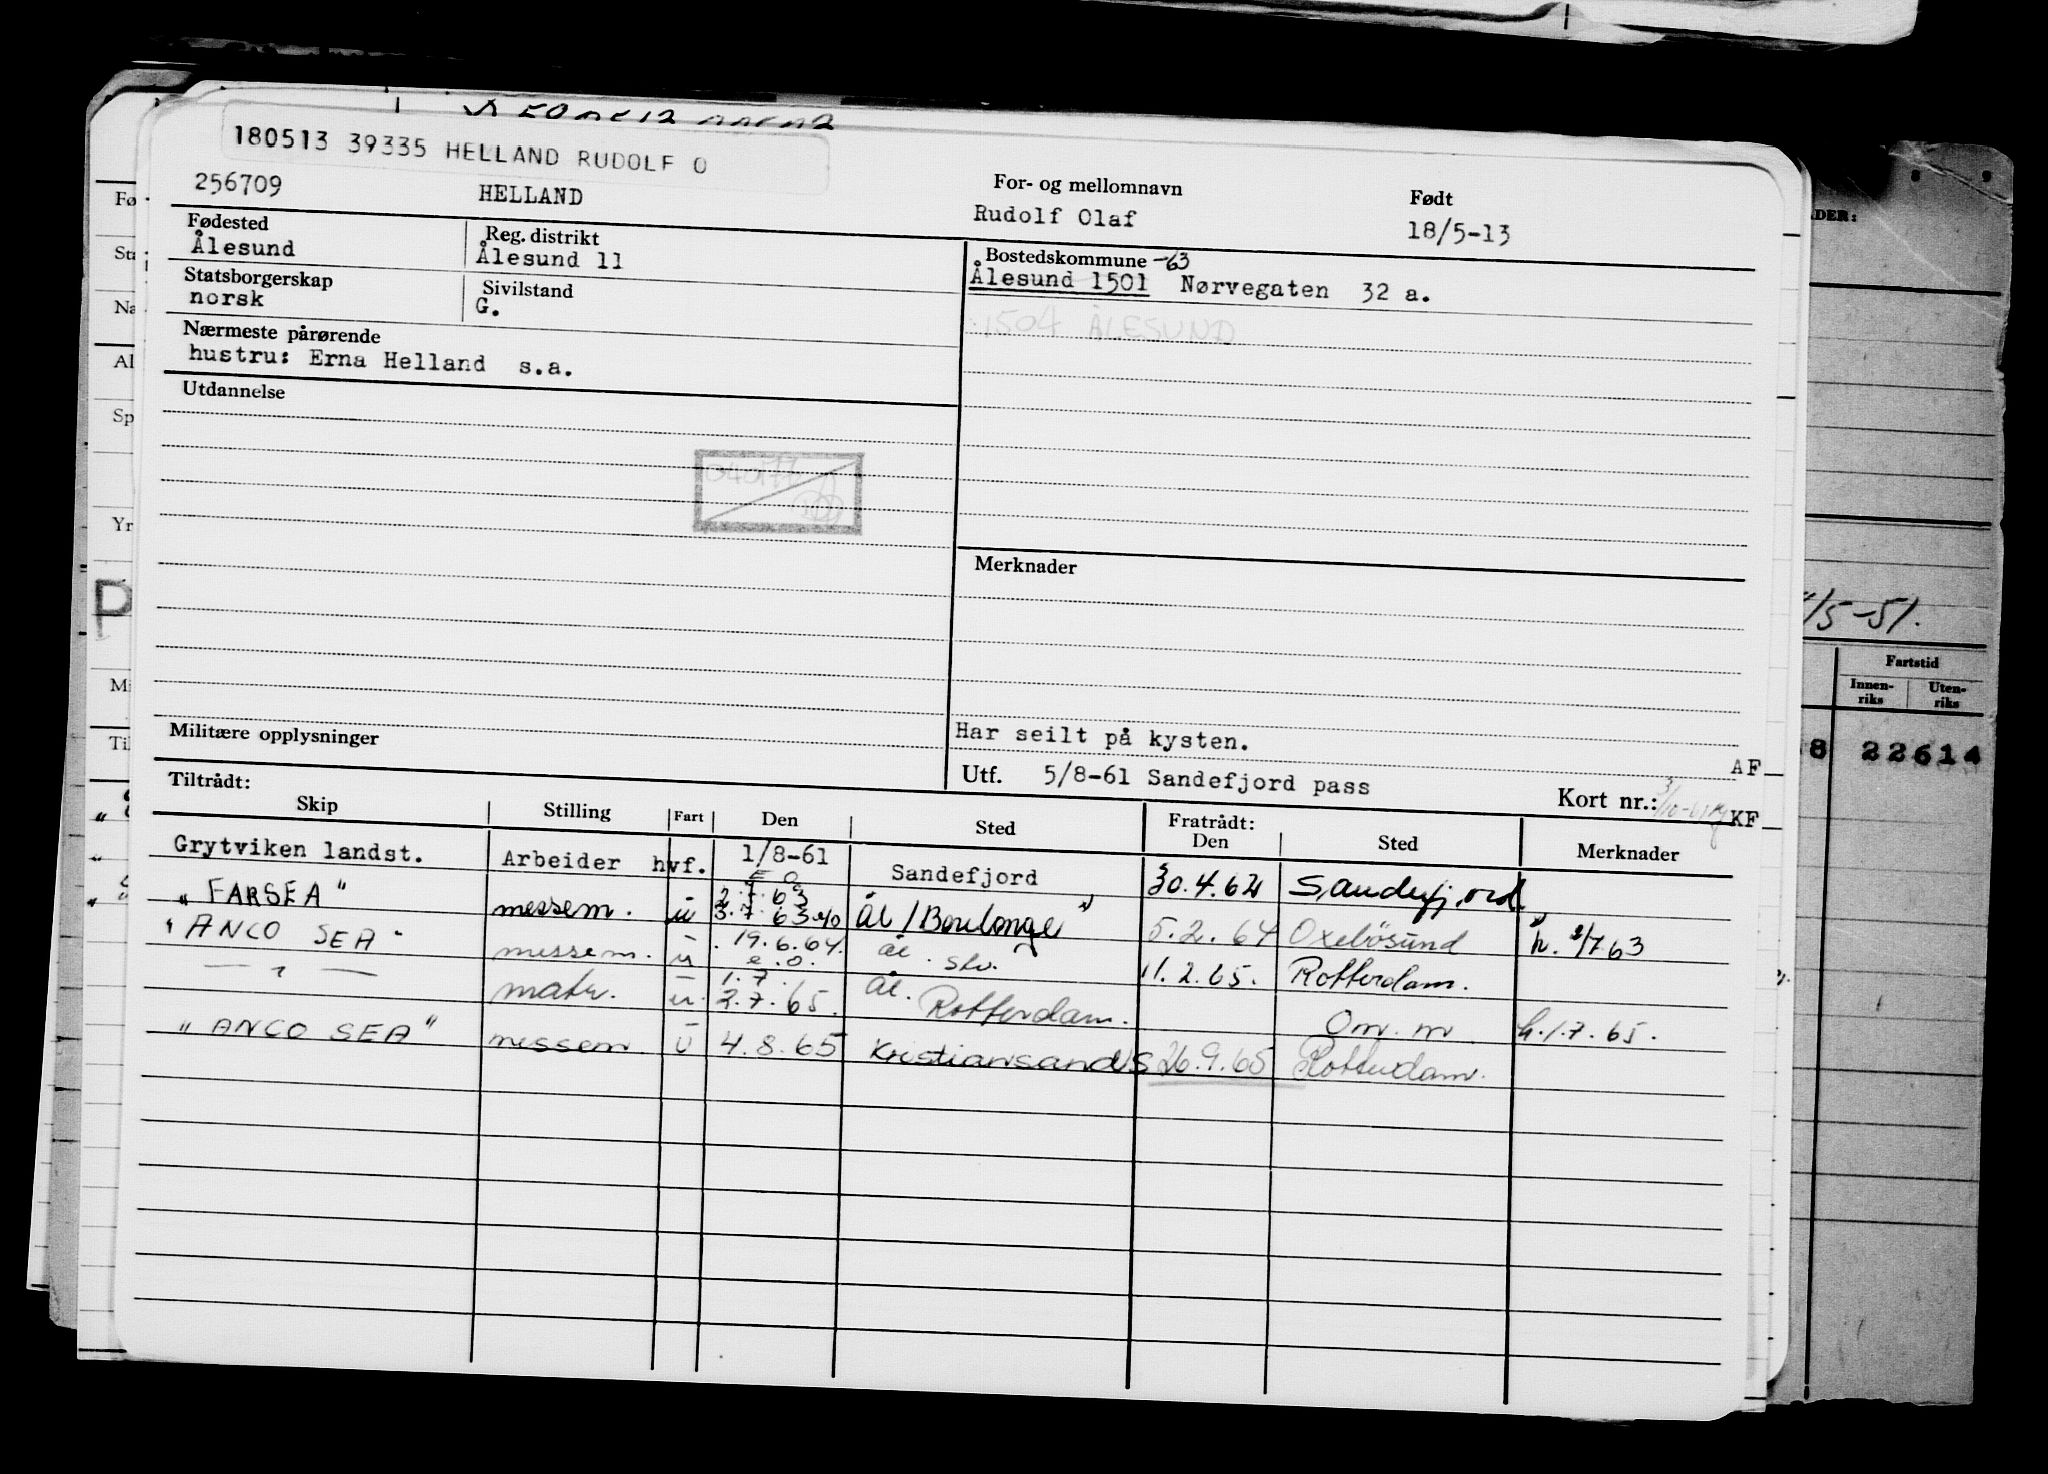 180513 39335 HELLAND RUDOLF O
256709 HELLAND
For- og mellomnavn
Rudolf Olaf
Født
18/5-13
Fødested
Ålesund
Reg. distrikt
Ålesund 11
Bostedskommune -63
Ålesund 1501 Nørvegaten 32 a.
1504 ÅLESUND
Statsborgerskap
norsk
Sivilstand
G.
Nærmeste pårørende
hustru: Erna Helland s.a.
Utdannelse
Merknader
Har seilt på kysten.
AF
Militære opplysninger
Utf. 5/8-61 Sandefjord pass
Kort nr.:
KF
Tiltrådt:
Skip Stilling Fart Den Sted Fratrådt: Den Sted Merknader
Grytviken landst. Arbeider hvf. 1/8-61 Sandefjord 30.4.62 Sandefjord
"FARSEA" messem. u 2.7.63 3.7.63 Ål/Boulonge 5.2.64 Oxelösund h. 2/7 63
"ANCO SEA" messem. u 19.6.64. e.o. ål. slv. 11.2.65. Rotterdam.
— " — matr. u. 1.7. 2.7.65. ål. Rotterdam. Om. m h.1.7.65.
"ANCO SEA" messem u 4.8.65 Kristiansand S 26.9.65 Rotterdam.
Fø
Sta
Na
Al
Sp
Yr
P
Mi
Til
ADER:
/5-51.
Fartstid
Innen-
riks
Uten-
riks
8 22614